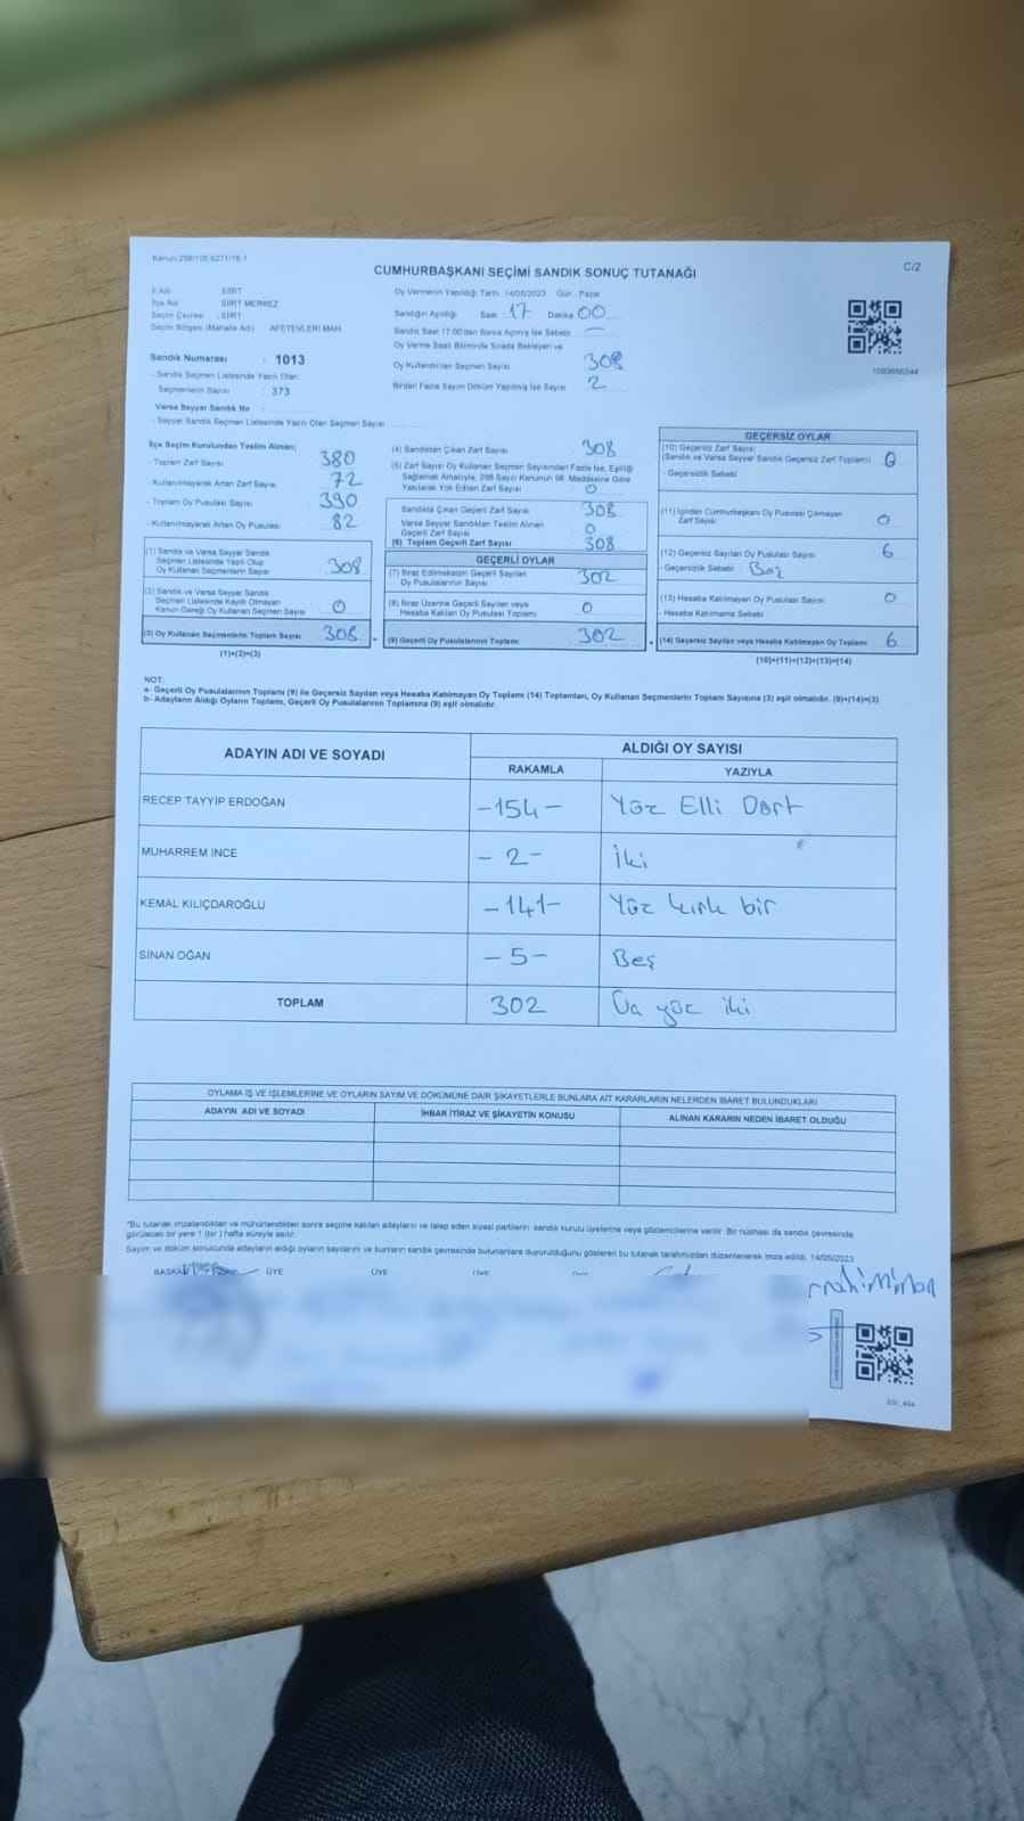 CUMHURBAŞKANI SEÇİMİ SANDIK SONUÇ TUTANAĞI
C/2
İl Adı : SİİRT
İlçe Adı : SİİRT MERKEZ
Seçim Çevresi : SİİRT
Seçim Bölgesi (Mahalle Adı) : AFETEVLERİ MAH.
Sandık Numarası : 1013
- Sandık Seçmen Listesinde Yazılı Olan
Seçmenlerin Sayısı : 373
Varsa Seyyar Sandık No
- Seyyar Sandık Seçmen Listesinde Yazılı Olan Seçmen Sayısı
Oy Vermenin Yapıldığı Tarih: 14/05/2023 Gün: Pazar
Sandığın Açıldığı Saat 17 Dakika 00
Sandık Saat 17:00'den Sonra Açılmış İse Sebebi —
Oy Verme Saati Bitiminde Sırada Bekleyen ve
Oy Kullandırılan Seçmen Sayısı 308
Birden Fazla Sayım Döküm Yapılmış İse Sayısı 2
İlçe Seçim Kurulundan Teslim Alınan;
- Toplam Zarf Sayısı 380
- Kullanılmayarak Artan Zarf Sayısı 72
- Toplam Oy Pusulası Sayısı 390
- Kullanılmayarak Artan Oy Pusulası 82
(1) Sandık ve Varsa Seyyar Sandık
Seçmen Listesinde Yazılı Olup
Oy Kullanan Seçmenlerin Sayısı 308
(2) Sandık ve Varsa Seyyar Sandık
Seçmen Listesinde Kayıtlı Olmayan
Kanun Gereği Oy Kullanan Seçmen Sayısı 0
(3) Oy Kullanan Seçmenlerin Toplam Sayısı 308
(1)+(2)=(3)
(4) Sandıktan Çıkan Zarf Sayısı 308
(5) Zarf Sayısı Oy Kullanan Seçmen Sayısından Fazla İse, Eşitliği
Sağlamak Amacıyla, 298 Sayılı Kanunun 98. Maddesine Göre
Yakılarak Yok Edilen Zarf Sayısı 0
Sandıkta Çıkan Geçerli Zarf Sayısı 308
Varsa Seyyar Sandıktan Teslim Alınan
Geçerli Zarf Sayısı 0
(6) Toplam Geçerli Zarf Sayısı 308
GEÇERLİ OYLAR
(7) İtiraz Edilmeksizin Geçerli Sayılan
Oy Pusulalarının Sayısı 302
(8) İtiraz Üzerine Geçerli Sayılan veya
Hesaba Katılan Oy Pusulası Toplamı 0
(9) Geçerli Oy Pusulalarının Toplamı 302
GEÇERSİZ OYLAR
(10) Geçersiz Zarf Sayısı
(Sandık ve Varsa Seyyar Sandık Geçersiz Zarf Toplamı) 0
- Geçersizlik Sebebi
(11) İçinden Cumhurbaşkanı Oy Pusulası Çıkmayan
Zarf Sayısı 0
(12) Geçersiz Sayılan Oy Pusulası Sayısı 6
- Geçersizlik Sebebi Boş
(13) Hesaba Katılmayan Oy Pusulası Sayısı 0
- Hesaba Katılmama Sebebi
(14) Geçersiz Sayılan veya Hesaba Katılmayan Oy Toplamı 6
(10)+(11)+(12)+(13)=(14)
NOT:
a- Geçerli Oy Pusulalarının Toplamı (9) ile Geçersiz Sayılan veya Hesaba Katılmayan Oy Toplamı (14) Toplamları, Oy Kullanan Seçmenlerin Toplam Sayısına (3) eşit olmalıdır. (9)+(14)=(3)
b- Adayların Aldığı Oyların Toplamı, Geçerli Oy Pusulalarının Toplamına (9) eşit olmalıdır.
ADAYIN ADI VE SOYADI
ALDIĞI OY SAYISI
RAKAMLA
YAZIYLA
RECEP TAYYİP ERDOĞAN -154- Yüz Elli Dört
MUHARREM İNCE -2- İki
KEMAL KILIÇDAROĞLU -141- Yüz kırk bir
SİNAN OĞAN -5- Beş
TOPLAM 302 Üç yüz iki
OYLAMA İŞ VE İŞLEMLERİNE VE OYLARIN SAYIM VE DÖKÜMÜNE DAİR ŞİKAYETLERLE BUNLARA AİT KARARLARIN NELERDEN İBARET BULUNDUKLARI
ADAYIN ADI VE SOYADI
İHBAR İTİRAZ VE ŞİKAYETİN KONUSU
ALINAN KARARIN NEDEN İBARET OLDUĞU
*Bu tutanak imzalandıktan ve mühürlendikten sonra seçime katılan adayların ve talep eden siyasi partilerin sandık kurulu üyelerine veya gözlemcilerine verilir. Bir nüshası da sandık çevresinde
görülecek bir yere 1 (bir) hafta süreyle asılır.
Sayım ve döküm sonucunda adayların aldığı oyların sayılarını ve bunların sandık çevresinde bulunanlara duyurulduğunu gösteren bu tutanak tarafımızdan düzenlenerek imza edildi. 14/05/2023
BAŞKAN ÜYE ÜYE